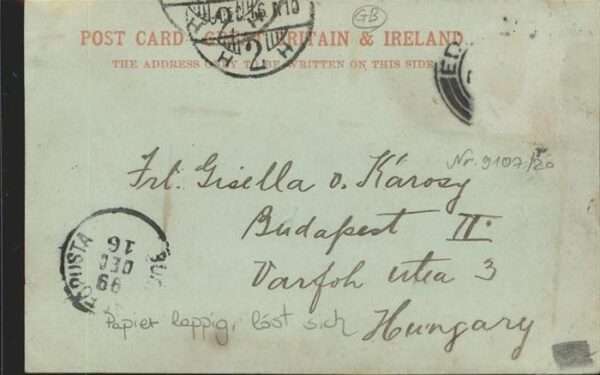 GB
POST CARD GREAT BRITAIN & IRELAND
THE ADDRESS ONLY TO BE WRITTEN ON THIS SIDE
ED
Nr. 9107/20
Frl. Gisella v. Károsy
Budapest II.
Varfoh utca 3
Hungary
BU
16
DEC
99
Papier lappig, löst sich